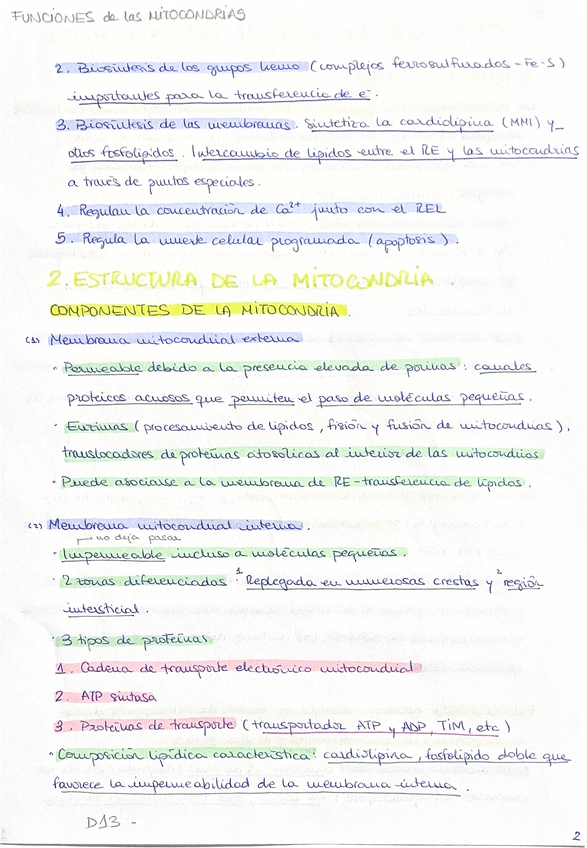 FUNCIONES de las MITOCONDRIAS
2. Biosíntesis de los grupos hemo (complejos ferrosulfurados - Fe-S)
importantes para la transferencia de e⁻.
3. Biosíntesis de las membranas. Sintetiza la cardiolipina (MMI) y
otros fosfolípidos. Intercambio de lípidos entre el RE y las mitocondrias
a través de puntos especiales.
4. Regulan la concentración de Ca²⁺ junto con el REL
5. Regula la muerte celular programada (apoptosis).
2. ESTRUCTURA DE LA MITOCONDRIA.
COMPONENTES DE LA MITOCONDRIA.
(1) Membrana mitocondrial externa
· Permeable debido a la presencia elevada de porinas: canales
proteicos acuosos que permiten el paso de moléculas pequeñas.
· Enzimas (procesamiento de lípidos, fisión y fusión de mitocondrias),
translocadores de proteínas citosólicas al interior de las mitocondrias
· Puede asociarse a la membrana de RE - transferencia de lípidos.
(2) Membrana mitocondrial interna.
no deja pasar
· Impermeable incluso a moléculas pequeñas.
· 2 zonas diferenciadas: ¹Replegada en numerosas crestas y ²región
intersticial.
· 3 tipos de proteínas
1. Cadena de transporte electrónico mitocondrial
2. ATP sintasa
3. Proteínas de transporte (transportador ATP y ADP, TIM, etc)
· Composición lipídica característica: cardiolipina, fosfolípido doble que
favorece la impermeabilidad de la membrana interna.
D13 -
2